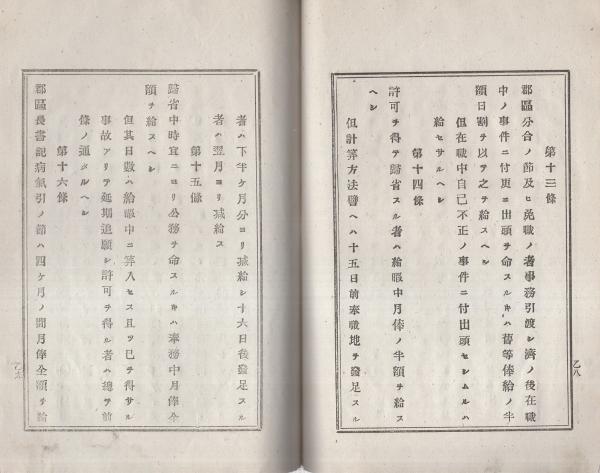 第十三條
郡區分合ノ節及ヒ免職ノ者事務引渡シ濟ノ後在職
中ノ事件ニ付更ニ出頭ヲ命スルキハ舊等俸給ノ半
額日割ヲ以テ之ヲ給スヘシ
但在職中自己不正ノ事件ニ付出頭セシムルハ
給セサルヘシ
第十四條
許可ヲ得テ歸省スル者ハ給暇中月俸ノ半額ヲ給ス
ヘシ
但計算方法譬ヘハ十五日前奉職地ヲ發足スル
乙八
者ハ下半ケ月分ヨリ減給シ十六日後發足スル
者ハ翌月ヨリ減給ス
第十五條
歸省中時宜ニヨリ公務ヲ命スルキハ奉務中月俸全
額ヲ給スヘシ
但其日數ハ給暇中ニ算入セス且ツ已ヲ得サル
事故アリテ延期追願シ許可ヲ得ル者ハ總テ前
條ノ通タルヘシ
第十六條
郡區長書記病氣引ノ節ハ四ケ月ノ間月俸全額ヲ給
乙九